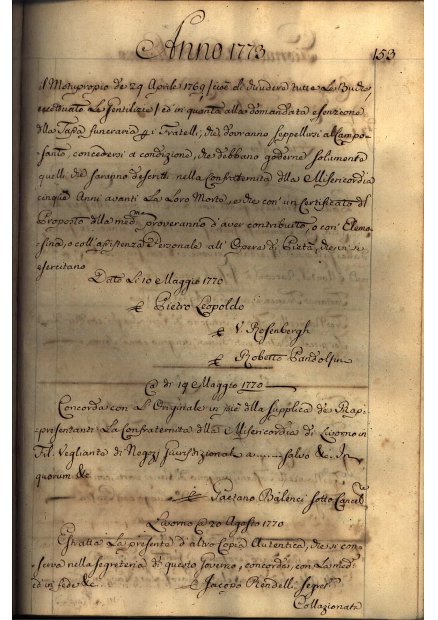 Anno 1773 153
il Motuproprio de 29 Aprile 1769 / cioè di chiudersi tutte le Buche,
eccettuato le Gentilizie / ed in quanto alla domandata esenzione
dlla Tassa funeraria p i Fratelli, che dovranno seppellirsi al Campo-
santo, concedersi a condizione, che debbano goderne solamente
quelli, che saranno descritti nella Confraternita dlla Misericordia
cinque Anni avanti la loro Morte, e che con un Certificato dl
Proposto dlla medma proveranno d'aver contribuito, o con Elemo-
sina, o coll'assistenza Personale all'Opere di Pietà, che vi si
esercitano
Dato li 10 Maggio 1770
Pietro Leopoldo
V. Rosenbergh
Roberto Pandolfini
di 14 Maggio 1770
Concorda con l'Originale in piè dlla supplica de Rap-
presentanti la Confraternita dlla Misericordia di Livorno in
Fil. Veglianti di Negozj Giurisdizionali a salvo &c. In
quorum &c
Gaetano Balenci Sotto Cancel.
Livorno 20 Agosto 1770
Estratta la presente d'altra Copia Autentica, che si con-
serva nella Segreteria di questo Governo, concorda, con la med.
ed in fede &c Jacopo Rendelli Segret.
Collazionata